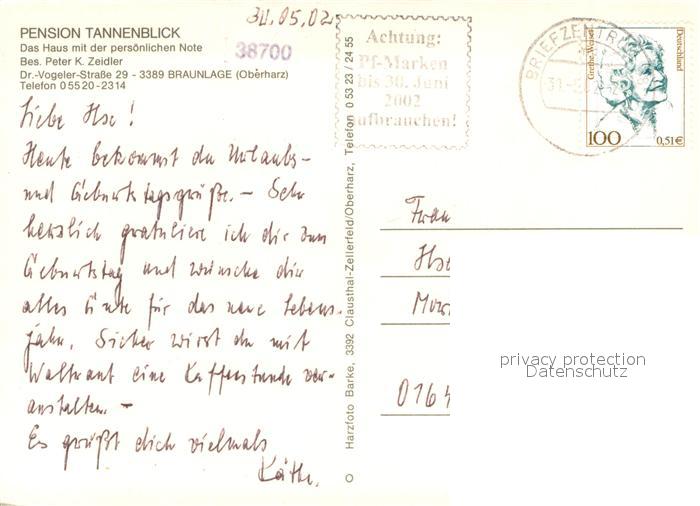 30.05.02
PENSION TANNENBLICK
Das Haus mit der persönlichen Note
Bes. Peter K. Zeidler
Dr.-Vogeler-Straße 29 - 3389 BRAUNLAGE (Oberharz)
Telefon 0 55 20 - 23 14
38700
Achtung:
Pf-Marken
bis 30. Juni
2002
aufbrauchen!
BRIEFZENTRUM
Grethe Weiser
Deutschland
100
0,51€
Liebe Ilse!
Heute bekommst du Urlaubs-
und Geburtstagsgrüße. – Sehr
herzlich gratuliere ich dir zum
Geburtstag und wünsche dir
alles Gute für das neue Lebens-
jahr. Sicher wirst du mit
Waltraut eine Kaffeestunde ver-
anstalten. –
Es grüßt dich vielmals
Käthe.
Harzfoto Barke, 3392 Clausthal-Zellerfeld/Oberharz, Telefon 0 53 23 / 24 55
Frau
Ilse
privacy protection
Datenschutz